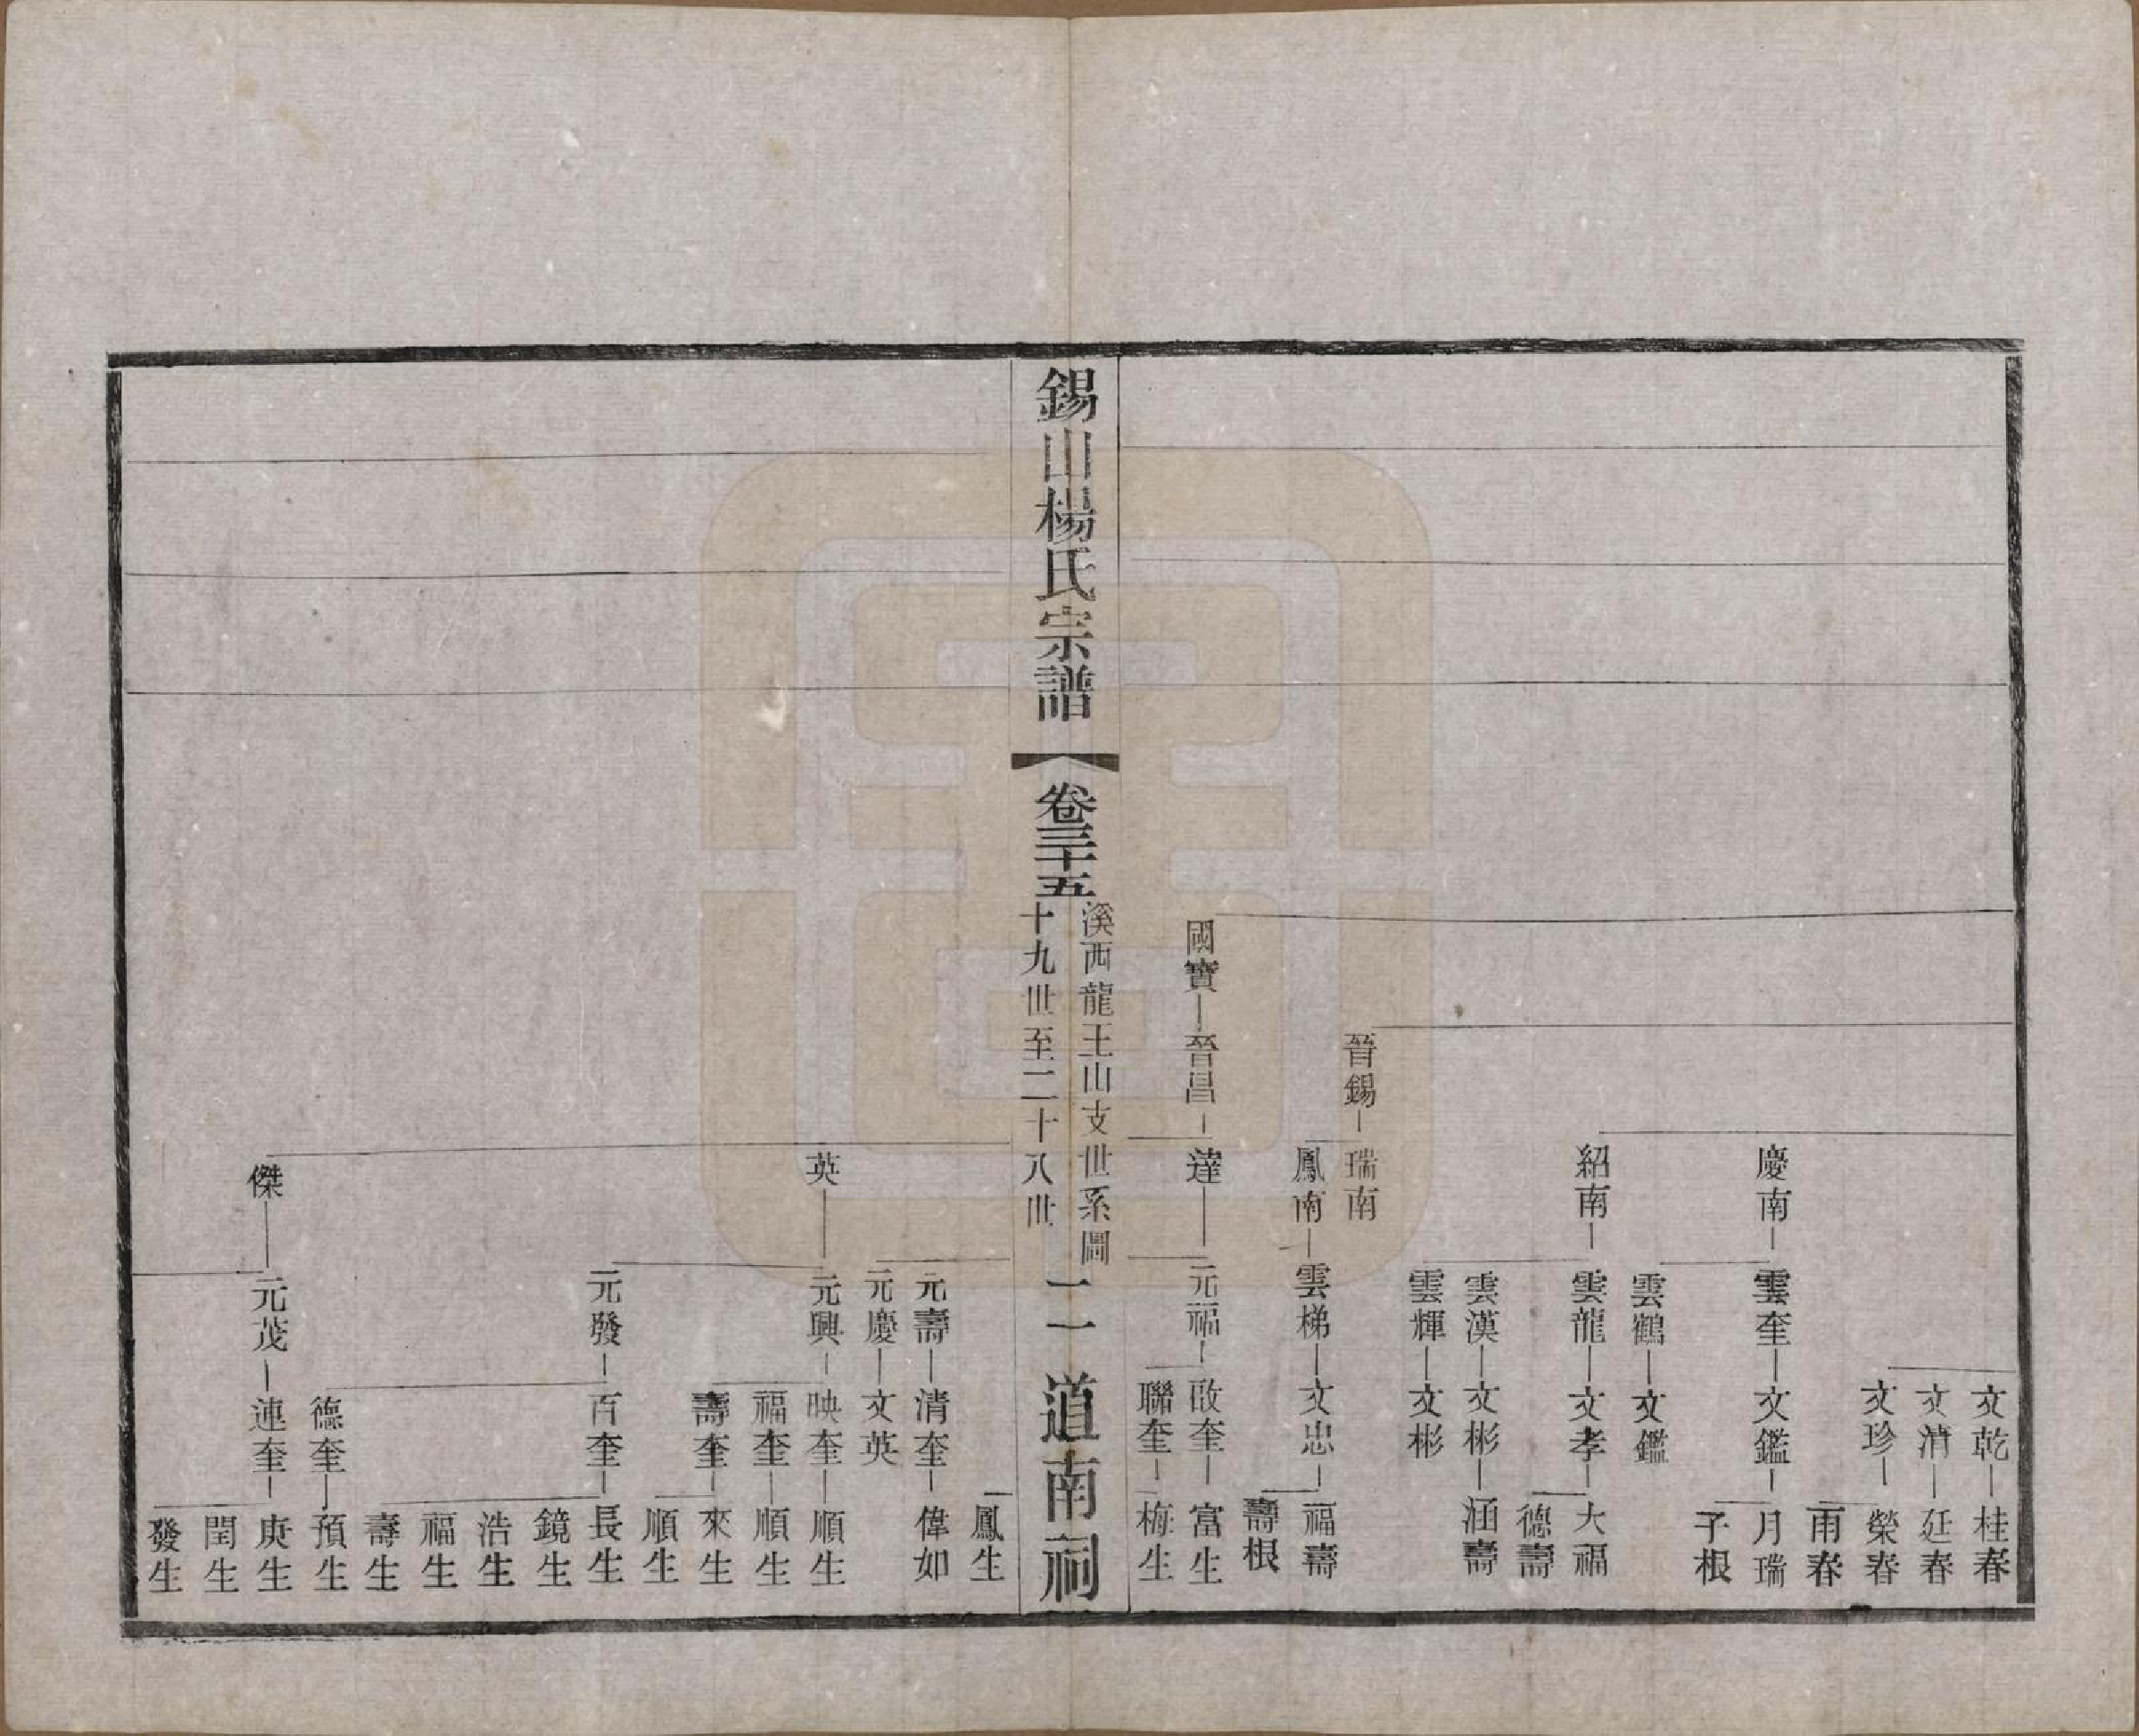 文乾 桂春
文清 廷春
文珍 榮春
雨春
慶南 雲奎 文鑑 月瑞
子根
雲鶴 文鑑
紹南 雲龍 文孝 大福
德壽
雲漢 文彬 涵壽
雲輝 文彬
晉錫 瑞南
鳳南 雲梯 文忠 福壽
壽根
國寶 晉昌 達 元福 啟奎 富生
聯奎 梅生
錫山楊氏宗譜
卷三十五
溪西龍王山支世系圖
十九世至二十八世
一一
道南祠
鳳生
元壽 清奎 偉如
元慶 文英
英 元興 映奎 順生
福奎 順生
壽奎 來生
順生
元發 百奎 長生
鏡生
浩生
福生
壽生
德奎 預生
傑 元茂 連奎 庚生
閏生
發生